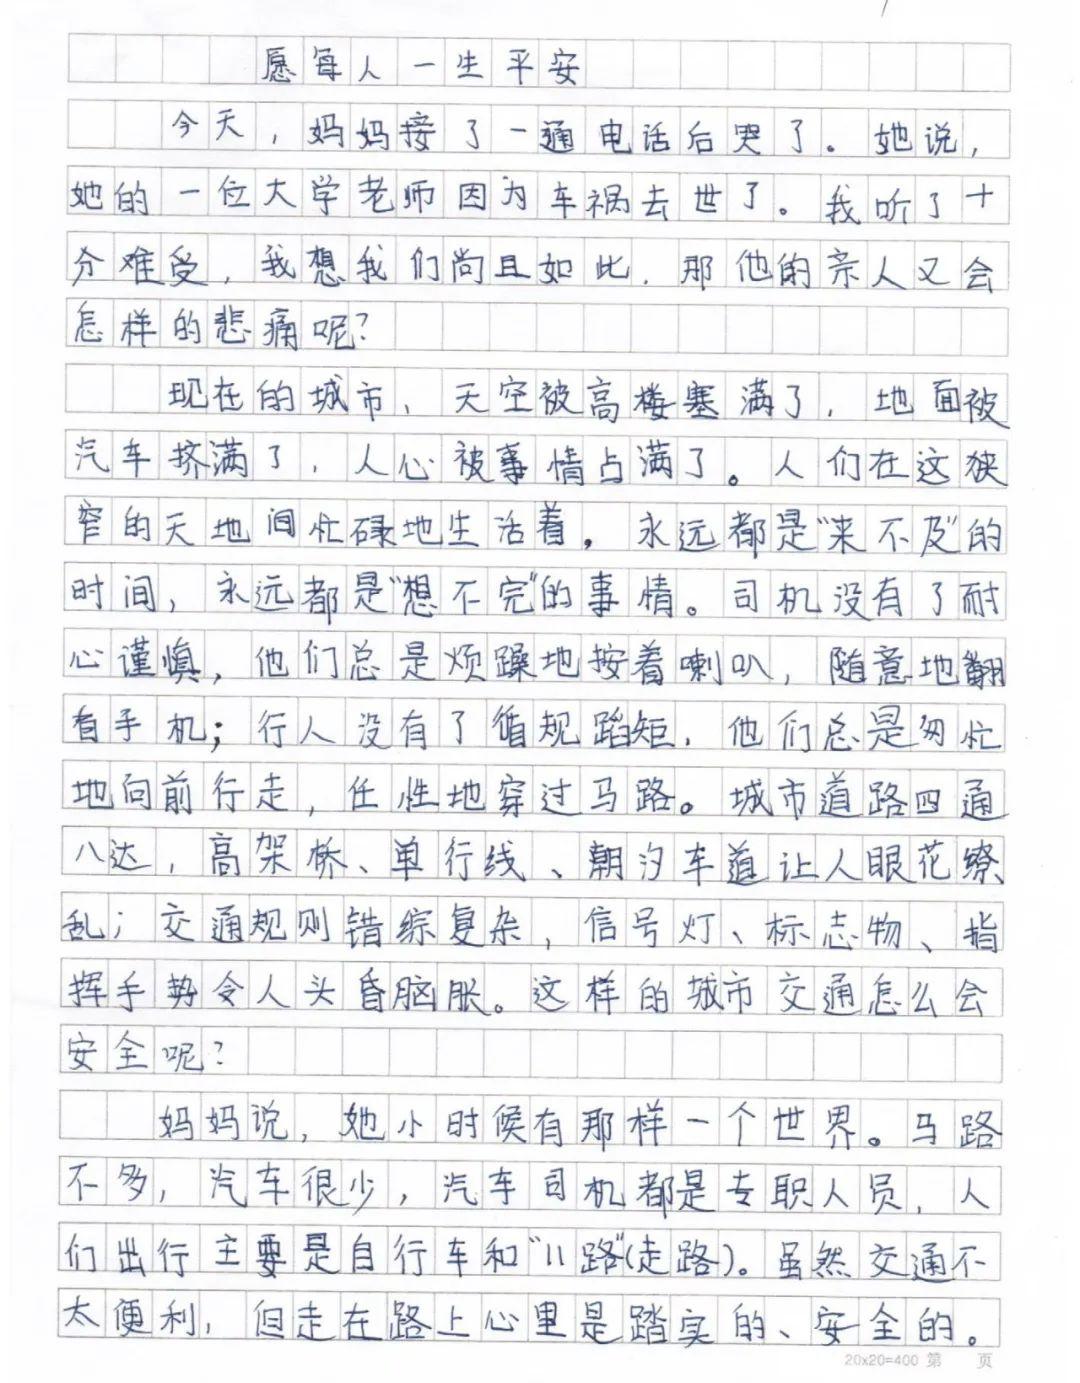 愿每人一生平安
今天，妈妈接了一通电话后哭了。她说，
她的一位大学老师因为车祸去世了。我听了十
分难受，我想我们尚且如此，那他的亲人又会
怎样的悲痛呢？
现在的城市，天空被高楼塞满了，地面被
汽车挤满了，人心被事情占满了。人们在这狭
窄的天地间忙碌地生活着，永远都是“来不及”的
时间，永远都是“想不完”的事情。司机没有了耐
心谨慎，他们总是烦躁地按着喇叭，随意地翻
看手机；行人没有了循规蹈矩，他们总是匆忙
地向前行走，任性地穿过马路。城市道路四通
八达，高架桥、单行线、朝汐车道让人眼花缭
乱；交通规则错综复杂，信号灯、标志物、指
挥手势令人头昏脑胀。这样的城市交通怎么会
安全呢？
妈妈说，她小时候有那样一个世界。马路
不多，汽车很少，汽车司机都是专职人员，人
们出行主要是自行车和“11路”(走路)。虽然交通不
太便利，但走在路上心里是踏实的、安全的。
20x20=400 第 页